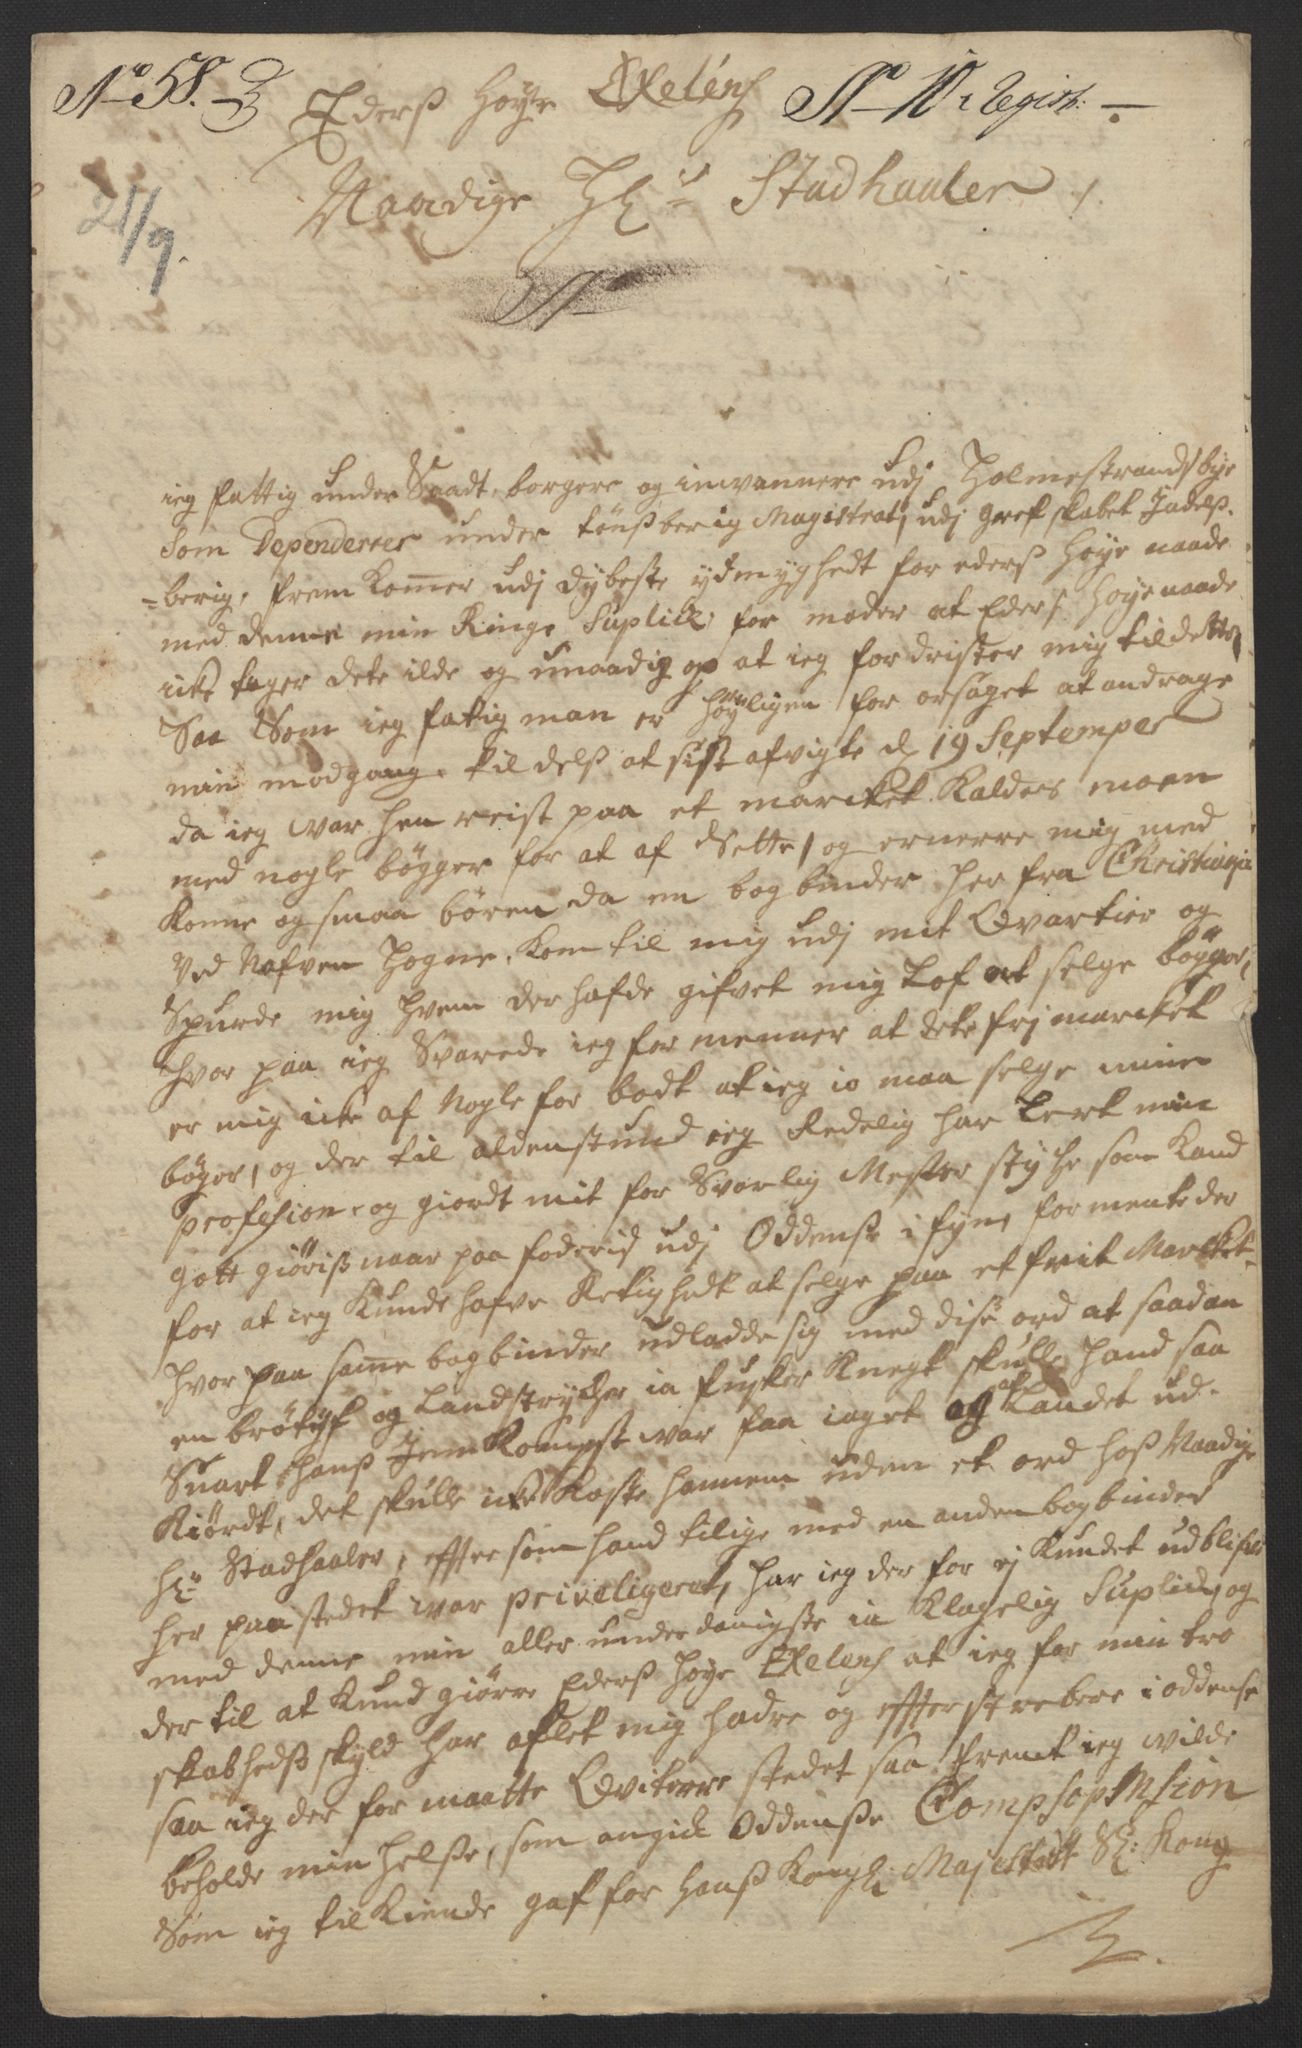 No 58.
Eders Høye Exelens No 10 i Regist:
21/9.
Naadige Hr Stadhaaler
No
ieg fattig under Saadt, borgere og inwannere udj Holmestrands bye
Som Dependerrer under tønsberig Magistrat, udj grefskabet Jarlsß-
=berig, frem kommer udj dybeste ydmyghedt for eders Høye naade
med denne min Ringe Suplick, for moder at Eders Høye naade
icke tager dete ilde og unaadig op at ieg fordrister mig til dette,
Saa Som ieg fatig man er høyligen for orsaget at andrage
min modgang, til delß at sist afvigte d 19 Septemper
da ieg war hen reist paa et marcket kaldes moen
med nogle bøgger for at af Sette, og ernerre mig med
konne og smaa børen da en bogbinder her fra Christiania
Ved Nafven Hogne, kom til mig udj mit Qvartier og
Spurde mig hvem der hafde gifvet mig Lof at selge bøgger,
hvor paa ieg Svarede ieg formenner at dete frj marcket
er mig icke af Nogle forbodt at ieg io maa selge mine
bøger, og der til aldenstund ieg Redelig har Lert min
profesion, og giordt mit forsvarlig Mester stycke som kand
gott giøriß naar paa foderis udj Oddenße i fyn, formente der
for at ieg kunde hafve Retighedt at selge paa et frit Marcket
hvor paa samme bogbinder udladde sig med dise ord at saadan
en brøtyf og Landstrycher ia fusker knegt skulle hand saa
Snart hanß Hiemkompst war faa iaget og af Landet ud-
kiørdt, det skulle icke koste hannem uden et ord hoß Naadige
Hr Stadhaaler, effter som hand tilige med en anden bogbinder
her paa stedet war priveligeret, har ieg der for ej kundet udblifve
med denne min aller underdanigste ia klagelig Suplick, og
der til at kundgiørre Eders Høye Exelens at ieg for min tro
skabhedß skyld har aflet mig hadre og effterstrebere i oddense
saa ieg der for maatte Qviterre stedet saa fremt ieg wilde
beholde min helße, som angick Oddenße Compsopmsion
Som ieg til kiende gaf for hanß Kongl: Majestett Sl: Kong